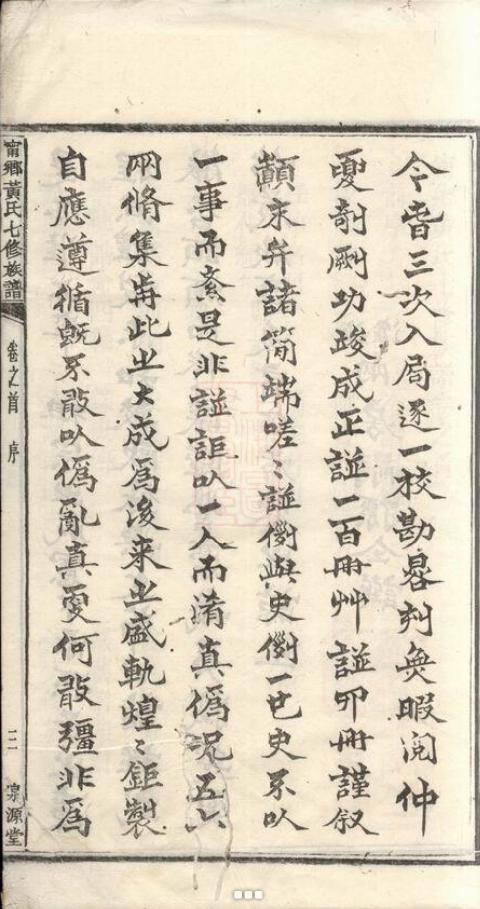 今旾三次入局逐一校勘晷刻無暇閱仲
夏剞劂功竣成正諩二百冊艸諩卯冊謹叙
顛末弁諸簡端嗟〻諩例與史例一也史不以
一事而紊是非諩詎以一人而淆真僞况五六
兩脩集歬此之大成爲後来之盛軌煌〻鉅製
自應遵循旣不敢以僞亂真更何敢彊非爲
甯鄉黃氏七修族譜
卷之首 序
三
源堂